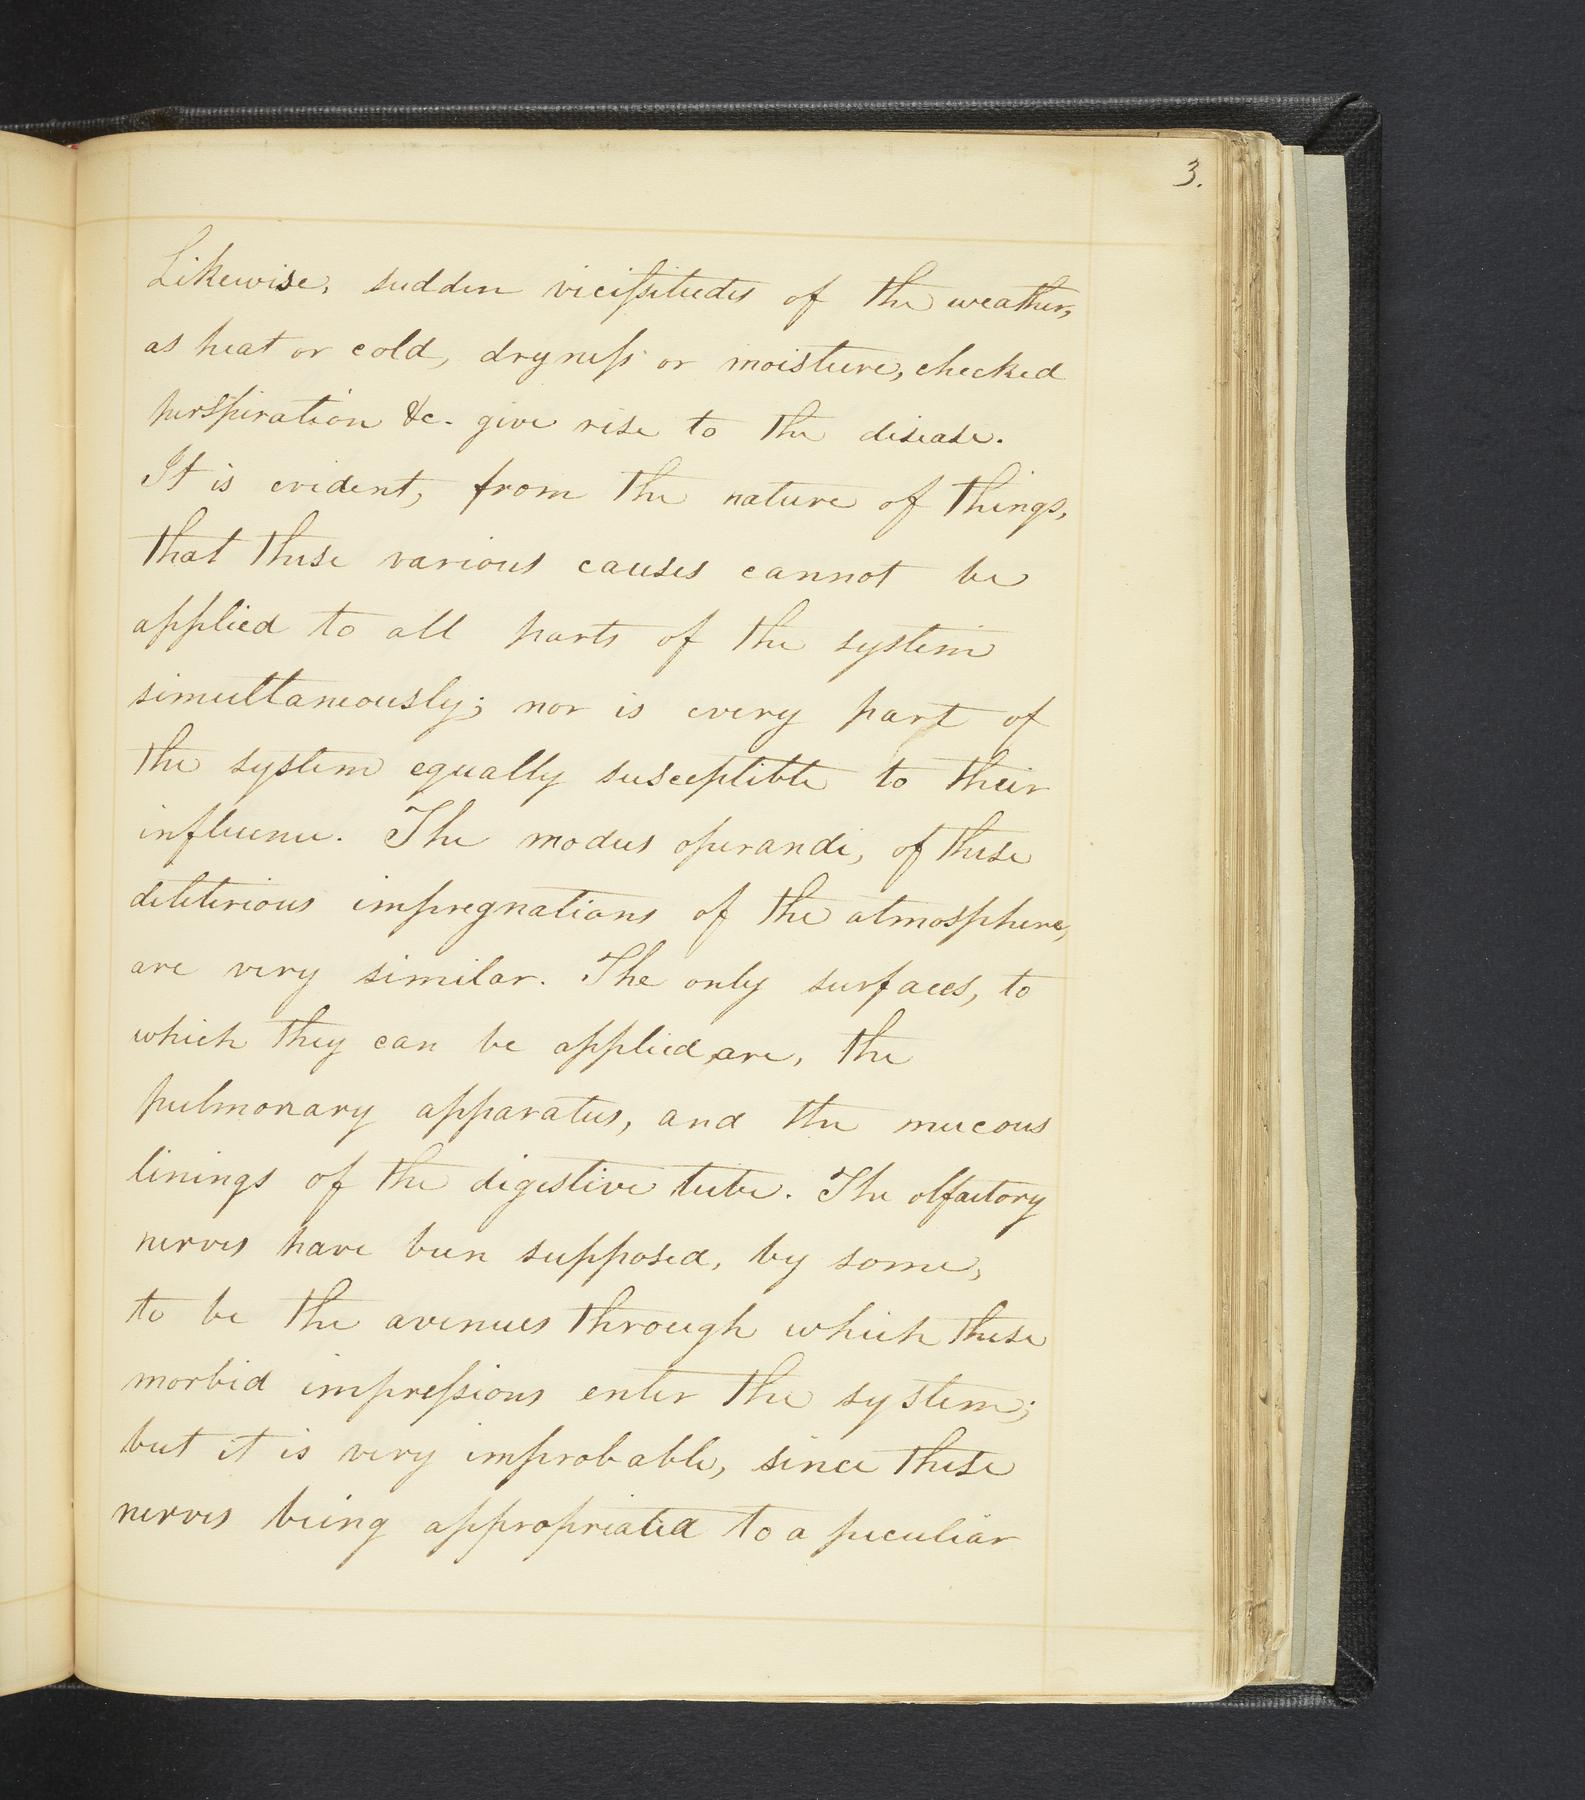 3.
Likewise, sudden vicissitudes of the weather,
as heat or cold, dryness or moisture, checked
perspiration &c. give rise to the disease.
It is evident, from the nature of things,
that these various causes cannot be
applied to all parts of the system
simultaneously; nor is every part of
the system equally susceptible to their
influence. The modus operandi, of these
deleterious impregnations of the atmosphere,
are very similar. The only surfaces, to
which they can be applied, are, the
pulmonary apparatus, and the mucous
linings of the digestive tube. The olfactory
nerves have been supposed, by some,
to be the avenues through which these
morbid impressions enter the system;
but it is very improbable, since these
nerves being appropriated to a peculiar